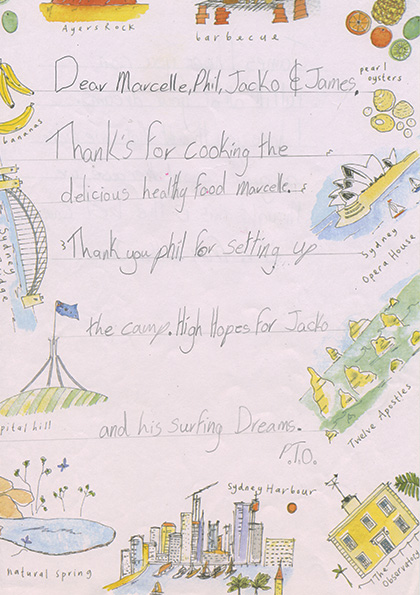 Ayers Rock
barbecue
Dear Marcelle, Phil, Jacko & James,
pearl oysters
bananas
Thank's for cooking the
delicious healthy food marcelle.
Sydney Opera House
Thank you phil for setting up
the camp. High Hopes for Jacko
Twelve Apostles
pital hill
and his surfing Dreams.
P.T.O.
Sydney Harbour
natural spring
The
Observato